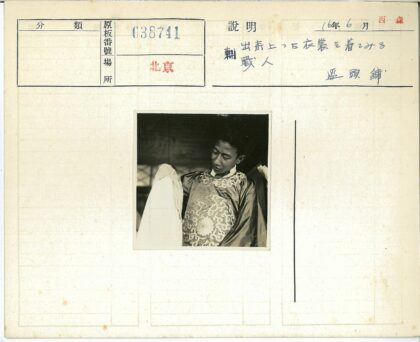 分類
原板番號 038741
場所 北京
説明 16年6月 西森
出来上つた衣裳を着てみる
職人
盔頭舗